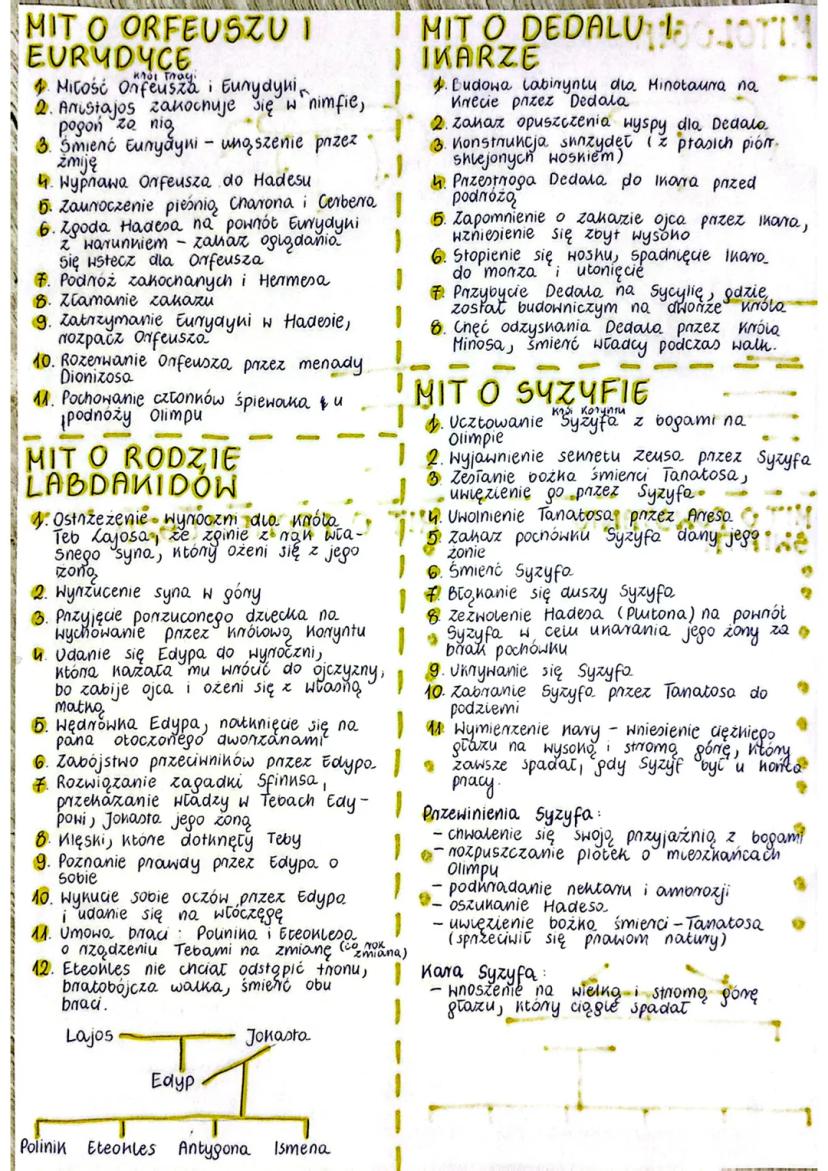 MIT O ORFEUSZU I
EURYDYCE
król Tracji
1. Miłość Orfeusza i Eurydyki
2. Aristajos zakochuje się w nimfie,
pogoń za nią
3. Śmierć Eurydyki – ukąszenie przez
żmiję
4. Wyprawa Orfeusza do Hadesu
5. Zauroczenie pieśnią Charona i Cerbera
6. Zgoda Hadesa na powrót Eurydyki
z warunkiem – zakaz oglądania
się wstecz dla Orfeusza
7. Podróż zakochanych i Hermesa
8. Złamanie zakazu
9. Zatrzymanie Eurydyki w Hadesie,
rozpacz Orfeusza
10. Rozerwanie Orfeusza przez menady
Dionizosa
11. Pochowanie członków śpiewaka u
podnóży Olimpu
MIT O RODZIE
LABDAKIDÓW
1. Ostrzeżenie wyroczni dla króla
Teb Lajosa, że zginie z rąk wła-
snego syna, który ożeni się z jego
żoną
2. Wyrzucenie syna w góry
3. Przyjęcie porzuconego dziecka na
wychowanie przez królową Koryntu
4. Udanie się Edypa do wyroczni,
która kazała mu wrócić do ojczyzny,
bo zabije ojca i ożeni się z własną
matką
5. Wędrówka Edypa, natknięcie się na
pana otoczonego dworzanami
6. Zabójstwo przeciwników przez Edypa
7. Rozwiązanie zagadki Sfinksa,
przekazanie władzy w Tebach Edy-
powi, Jokasta jego żoną
8. Klęski, które dotknęły Teby
9. Poznanie prawdy przez Edypa o
sobie
10. Wykucie sobie oczów przez Edypa
i udanie się na włóczęgę
11. Umowa braci: Polinika i Eteoklesa
o rządzeniu Tebami na zmianę (co rok
zmiana)
12. Eteokles nie chciał odstąpić tronu,
bratobójcza walka, śmierć obu
braci.
Lajos Jokasta
Edyp
Polinik Eteokles Antygona Ismena
MIT O DEDALU I
IKARZE
1. Budowa labiryntu dla Minotaura na
Krecie przez Dedala
2. Zakaz opuszczenia wyspy dla Dedala
3. Konstrukcja skrzydeł (z ptasich piór
sklejonych woskiem)
4. Przestroga Dedala do Ikara przed
podróżą
5. Zapomnienie o zakazie ojca przez Ikara,
wzniesienie się zbyt wysoko
6. Stopienie się wosku, spadnięcie Ikara
do morza i utonięcie
7. Przybycie Dedala na Sycylię, gdzie
został budowniczym na dworze króla
8. Chęć odzyskania Dedala przez króla
Minosa, śmierć władcy podczas walk.
MIT O SYZYFIE
król Koryntu
1. Ucztowanie Syzyfa z bogami na
Olimpie
2. Wyjawnienie sekretu Zeusa przez Syzyfa
3. Zesłanie bożka śmierci Tanatosa,
uwięzienie go przez Syzyfa
4. Uwolnienie Tanatosa przez Aresa
5. Zakaz pochówku Syzyfa dany jego
żonie
6. Śmierć Syzyfa
7. Błąkanie się duszy Syzyfa
8. Zezwolenie Hadesa (Plutona) na powrót
Syzyfa w celu ukarania jego żony za
brak pochówku
9. Ukrywanie się Syzyfa
10. Zabranie Syzyfa przez Tanatosa do
podziemi
11. Wymierzenie kary – wniesienie ciężkiego
głazu na wysoką i stromą górę, który
zawsze spadał, gdy Syzyf był u końca
pracy.
Przewinienia Syzyfa:
– chwalenie się swoją przyjaźnią z bogami
– rozpuszczanie plotek o mieszkańcach
Olimpu
– podkradanie nektaru i ambrozji
– oszukanie Hadesa
– uwięzienie bożka śmierci – Tanatosa
(sprzeciwił się prawom natury)
Kara Syzyfa:
– wnoszenie na wielką i stromą górę
głazu, który ciągle spadał